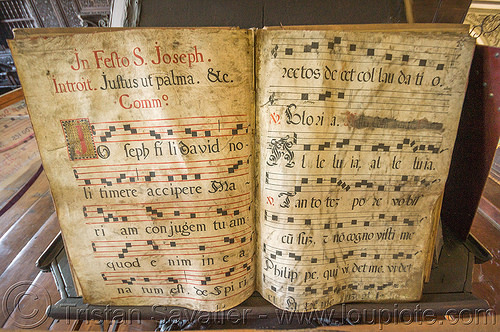 In Festo S. Joseph.
Introit. Justus ut palma. &c.
Comm.
O seph fi li David no-
li timere accipere Ma-
ri am conjugem tu am
quod e nim in e a
na tum est, de Spi ri
rectos de cet col lau da ti o.
V. Glo ri a.
Al le lu ia, al le luia.
V. Tan to tem po re vobis
cũ sum, & no cogno vistis me
Philip pe, qui vi det me, vi det
© Tristan Savatier - www.loupiote.com